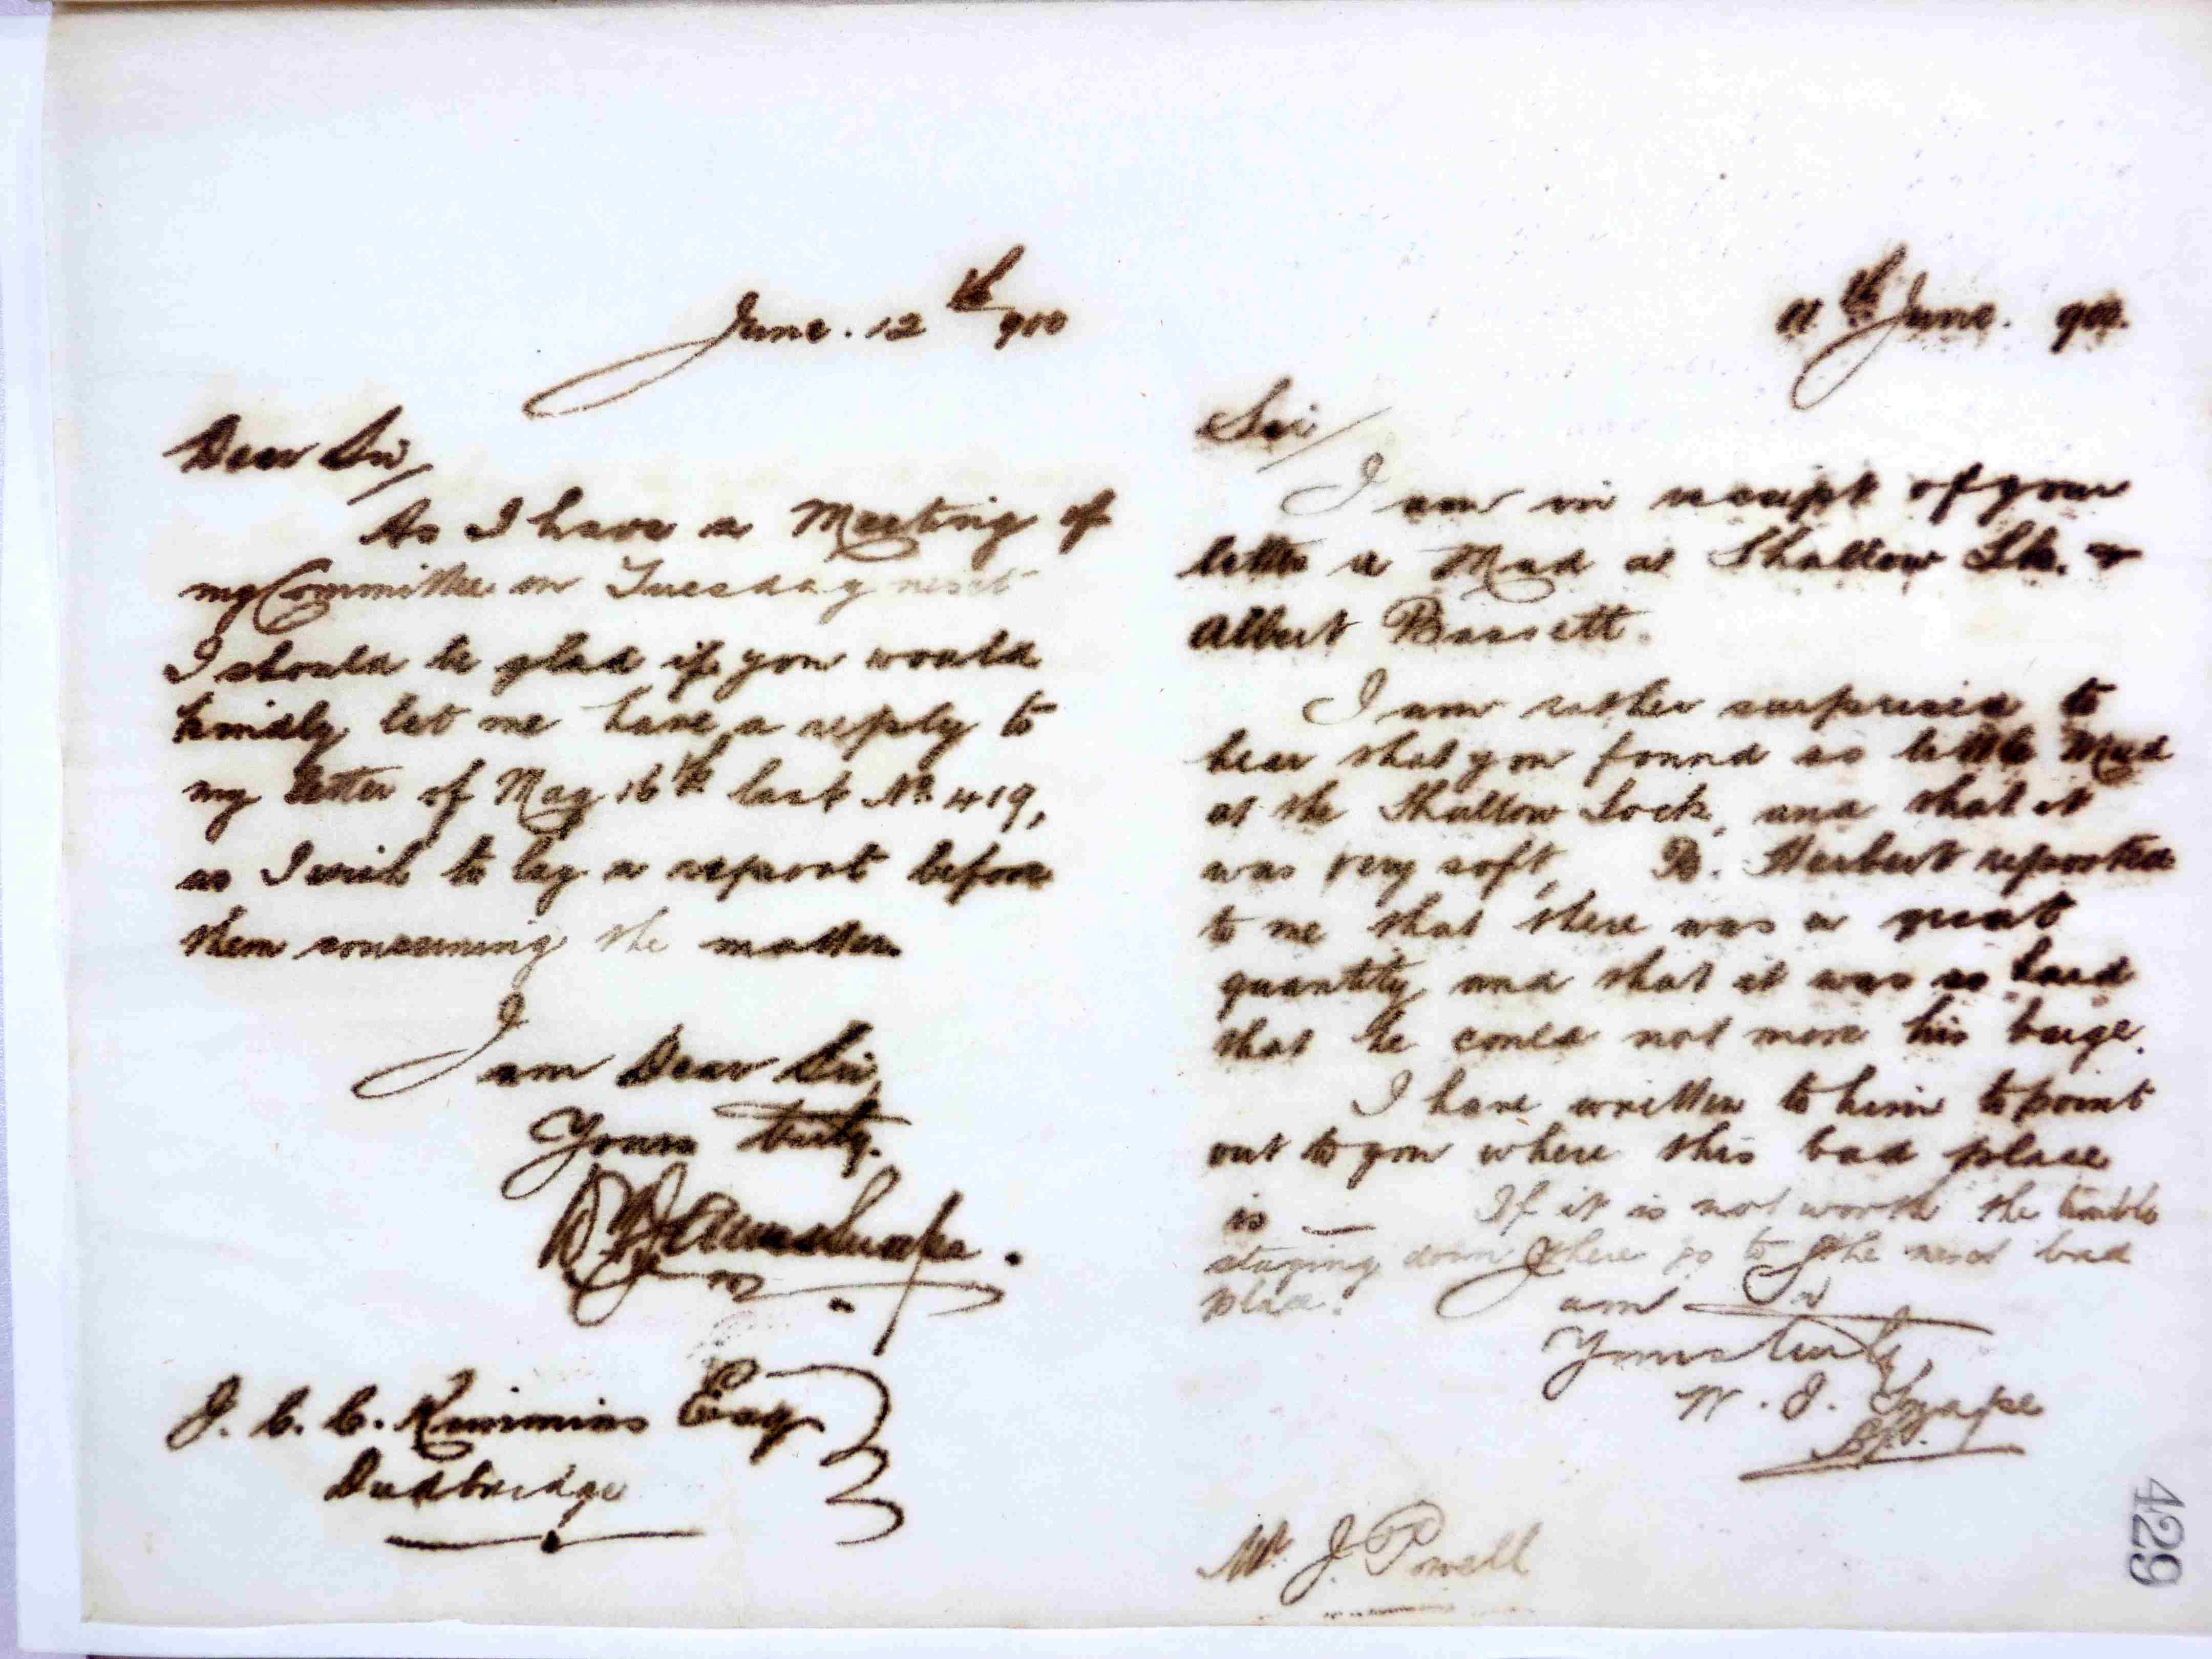 June. 12th 900
Dear Sir/
As I have a Meeting of
my Committee on Tuesday next
I should be glad if you would
kindly let me have a reply to
my letter of May 16th last No 419,
as I wish to lay a report before
them concerning the matter.
I
am Dear Sir,
Yours truly.
J. C. C. Kimmins Esq
Dudbridge
11th June. 900.
Sir/
I am in receipt of your
letter re Mud at Shallow Lk. &
Albert Bassett.
I am rather surprised to
hear that you found so little Mud
at the Shallow Lock, and that it
was very soft, B. Herbert reported
to me that there was a great
quantity and that it was so hard
that he could not move his barge.
I have written to him to point
out to you where this bad place
is — If it is not worth the trouble
staying down there go to the next bad
place. I am Sir
Yours truly,
W. J. Snape
Mr J. Powell
429